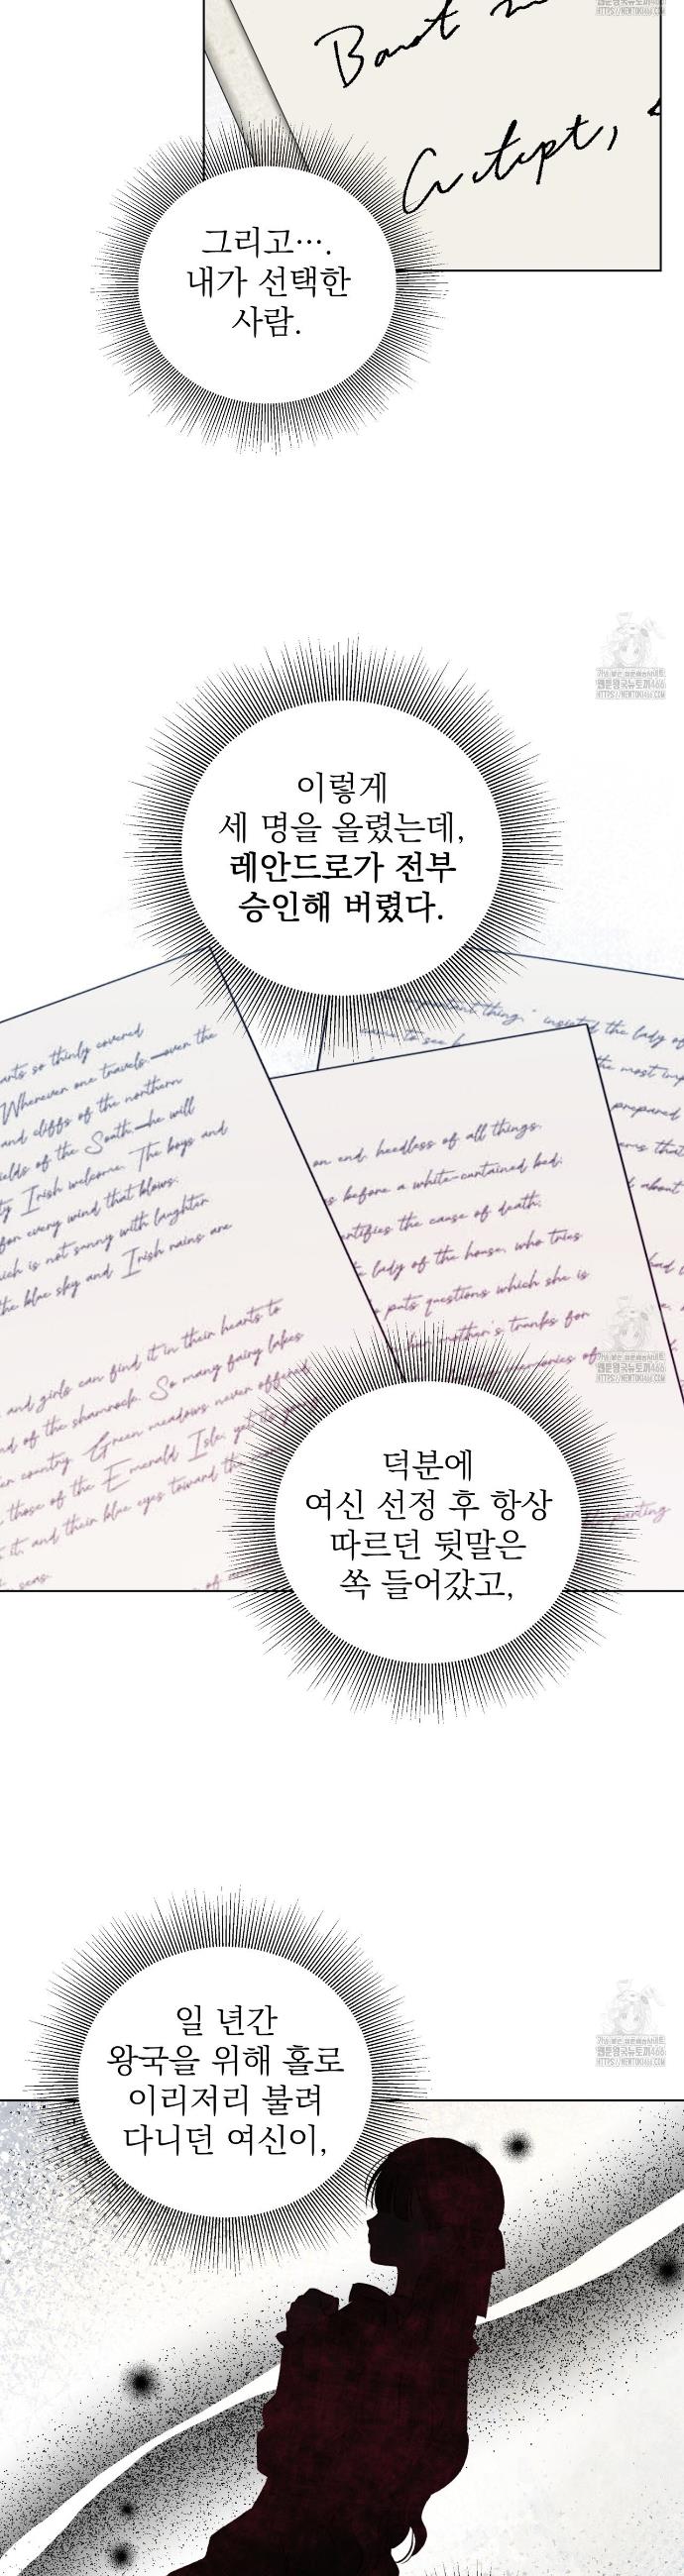 그리고….
내가 선택한
사람.
이렇게
세 명을 올렸는데,
레안드로가 전부
승인해 버렸다.
arts so thinly covered
Wherever one travels,—over the
and cliffs of the northern
ields of the South,—he will
ty Irish welcome. The boys and
for every wind that blows;
hich is not sunny with laughter
the blue sky and Irish rains are
and girls can find it in their hearts to
nd of the shamrock. So many fairy lakes
en country. Green meadows never offered
those of the Emerald Isle; yet its
it, and their blue eyes toward the
seas.
thing," insisted the lady of
came to see
the most imp
prepared
about
on end, heedless of all things,
before a white-curtained bed;
entifies the cause of death;
lady of the house, who tries
puts questions which she is
mother's thanks for
memories of
parting
덕분에
여신 선정 후 항상
따르던 뒷말은
쏙 들어갔고,
일 년간
왕국을 위해 홀로
이리저리 불려
다니던 여신이,